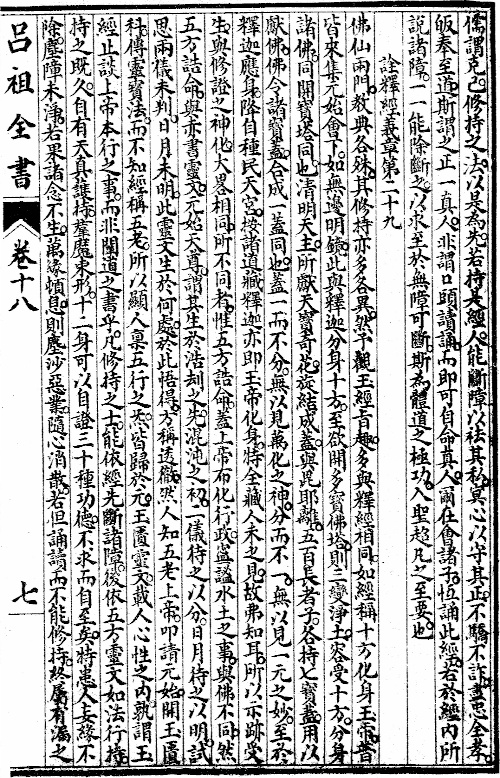 儒謂克己修持之法以是為先若持是經人能斷障以袪其私冥心以守其正不驕不詐盡忠全孝
皈奉至道斯謂之正一真人非謂口頭讀誦而即可自命真人爾在會諸子恆誦此經若於經內所
說諸障一一能除斷之以求至於無障可斷斯為體道之極功入聖超凡之至要也
詮釋經義章第二十九
佛仙兩門教典各殊其修持亦多各異然平觀玉經旨趣多與釋經相同如經稱十方化身玉帝普
皆來集元始會下如無邊明鏡此與釋迦分身十方至欲開多寶佛塔則三變淨土容受十方分身
諸佛同開寶塔同也清明天主所獻天寶奇花旋結成蓋與毘耶離五百長者子各持七寶蓋用以
獻佛佛令諸寶蓋合成一蓋同也蓋一而不分無以見萬化之神分而不一無以見一元之妙至於
釋迦應身降自種民天宮按諸道藏釋迦亦即玉帝化身特全藏人未之見故弗知耳所以示跡受
生與修證之神化大畧相同所不同者惟五方誥命蓋上帝布化行政寧謐水土之事與佛不同然
五方誥命與赤書靈文元始天尊謂其生於浩刦之先混沌之初二儀待之以分日月待之以明試
思兩儀未判日月未明此靈文生於何處於此悟得方稱透徹然人知五老上帝叩請元始開玉匱
科傳靈寶法而不知經稱五老所以顯人稟五行之炁皆歸於元玉匱靈文載人心性之內孰謂玉
經止談上帝本行之事而非闡道之書乎凡修持之士能依經先斷諸障後依五方靈文如法行持
持之既久自有天真護持羣魔束形十一身可以自證三十種功德不求而自至矣特患人妄緣不
除塵障未淨若果諸念不生萬緣頓息則塵沙惡業隨心消散若但誦讀而不能修持終屬有漏之
呂祖全書
卷十八
七